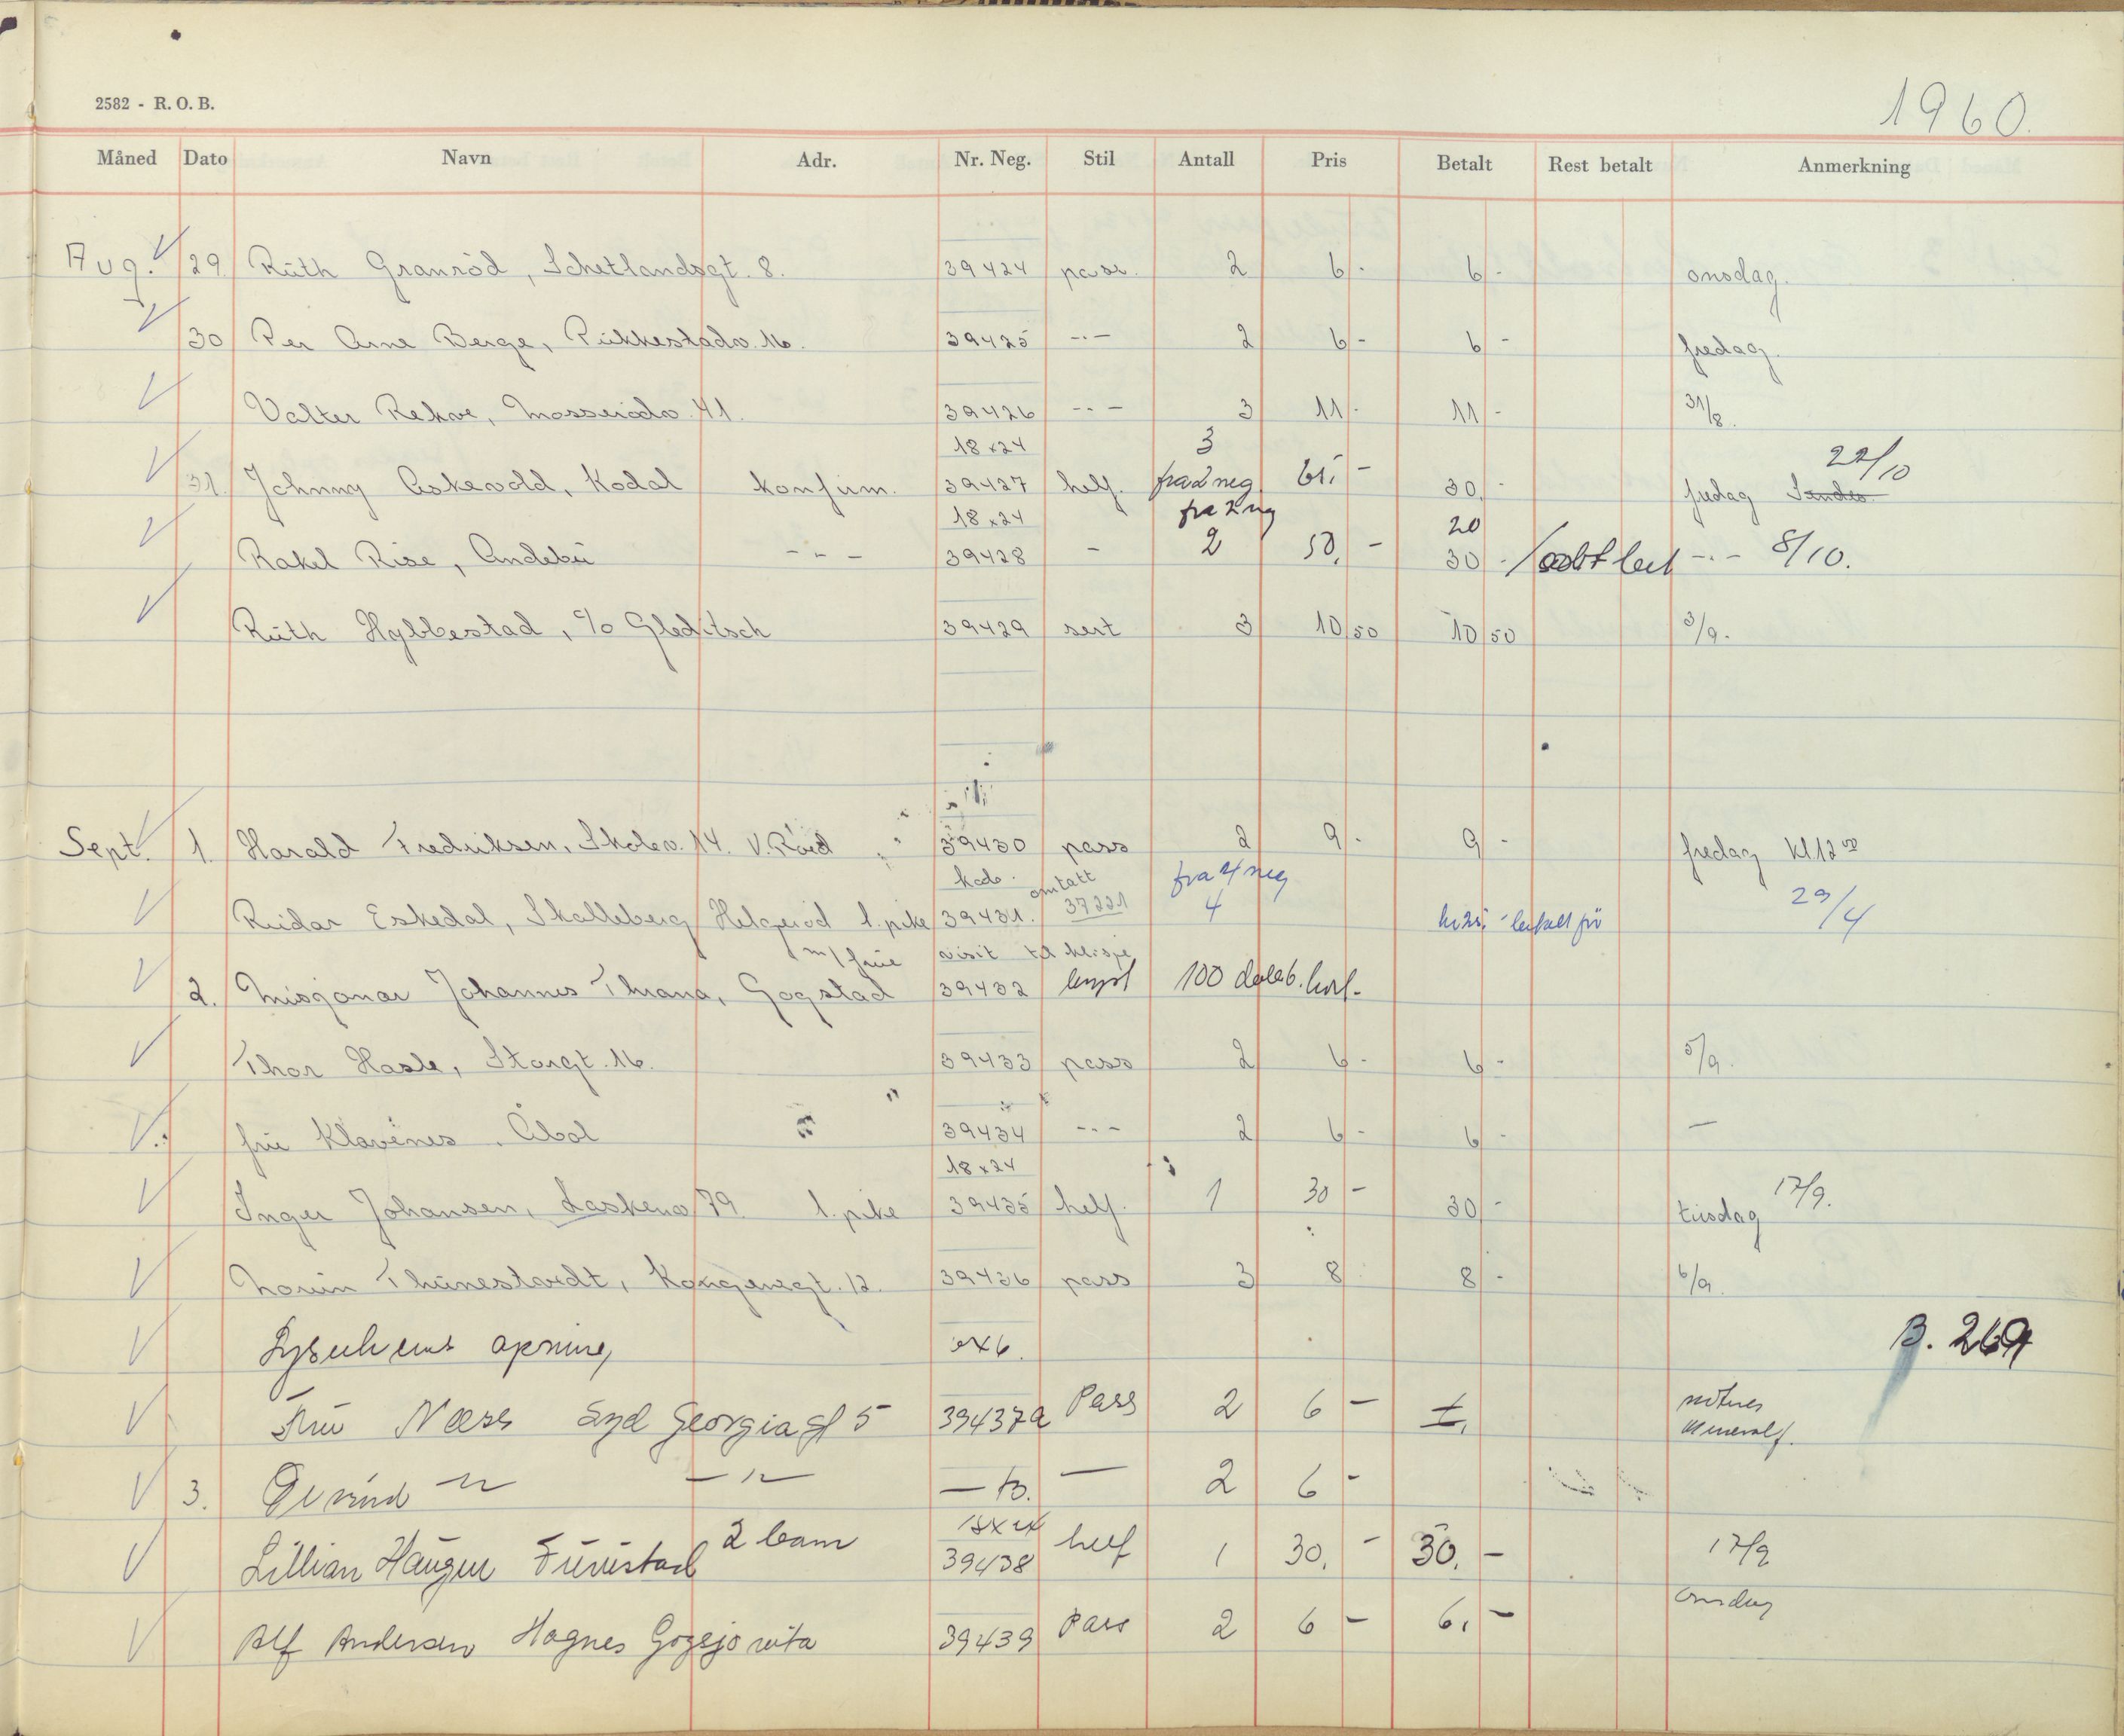 2582 - R. O. B.
1960.
Måned Dato Navn Adr. Nr. Neg. Stil Antall Pris Betalt Rest betalt Anmerkning
Aug. 29 Ruth Granrød, Schetlandsgt. 8. 39424 pass. 2 6 - 6 - onsdag.
30 Per Arne Berge, Pukkestadv. 16. 39425 -"- 2 6 - 6 - fredag.
Valter Rekve, Mosserødv. 41. 39426 -"- 3 11 - 11 - 31/8.
18 x 24 3 22/10
31. Johnny Askevold, Kodal konfirm. 39427 helf. fra 2 neg. 61,- 30,- fredag
18 x 24 fra 2 neg 20
Rakel Rise, Andebu -"- 39428 - 2 50,- 30 - -"- 8/10.
Ruth Hybbestad, c/o Gleditsch 39429 sert 3 10 50 10 50 3/9.
Sept. 1. Harald Fredriksen, Skolev. 14. V. Råed 39430 pass 2 9 - 9 - fredag kl 12 00
kab. omtatt fra 4 neg
Reidar Eskedal, Skalleberg Helgerød 1. pike 39431. 37221 4 29/4
m/ frue visit til klisje
2. Misjonær Johannes Thrana, Gogstad 39432 100
Thor Hasle, Storgt. 16. 39433 pass 2 6 - 6 - 5/9.
fru Klavenes. Åbol 39434 -"- 2 6 - 6 - —
18 x 24
Inger Johansen, Laskenv 79. 1. pike 39435 helf. 1 30 - 30 - tirsdag 17/9.
Thunestvedt, Kongensgt. 12. 39436 pass 3 8 8 - 6/9.
6x6. B. 269
Fru Næss Syd Georgia gt 5 39437a Pass 2 6 -
3. Øivind -"- -"- — b. — 2 6 -
2 barn 18x24
Lillian Haugen Furustad 39438 helf 1 30,- 30,- 17/9
onsdag
Alf Andersen Hagnes 39439 Pass 2 6 - 6,-